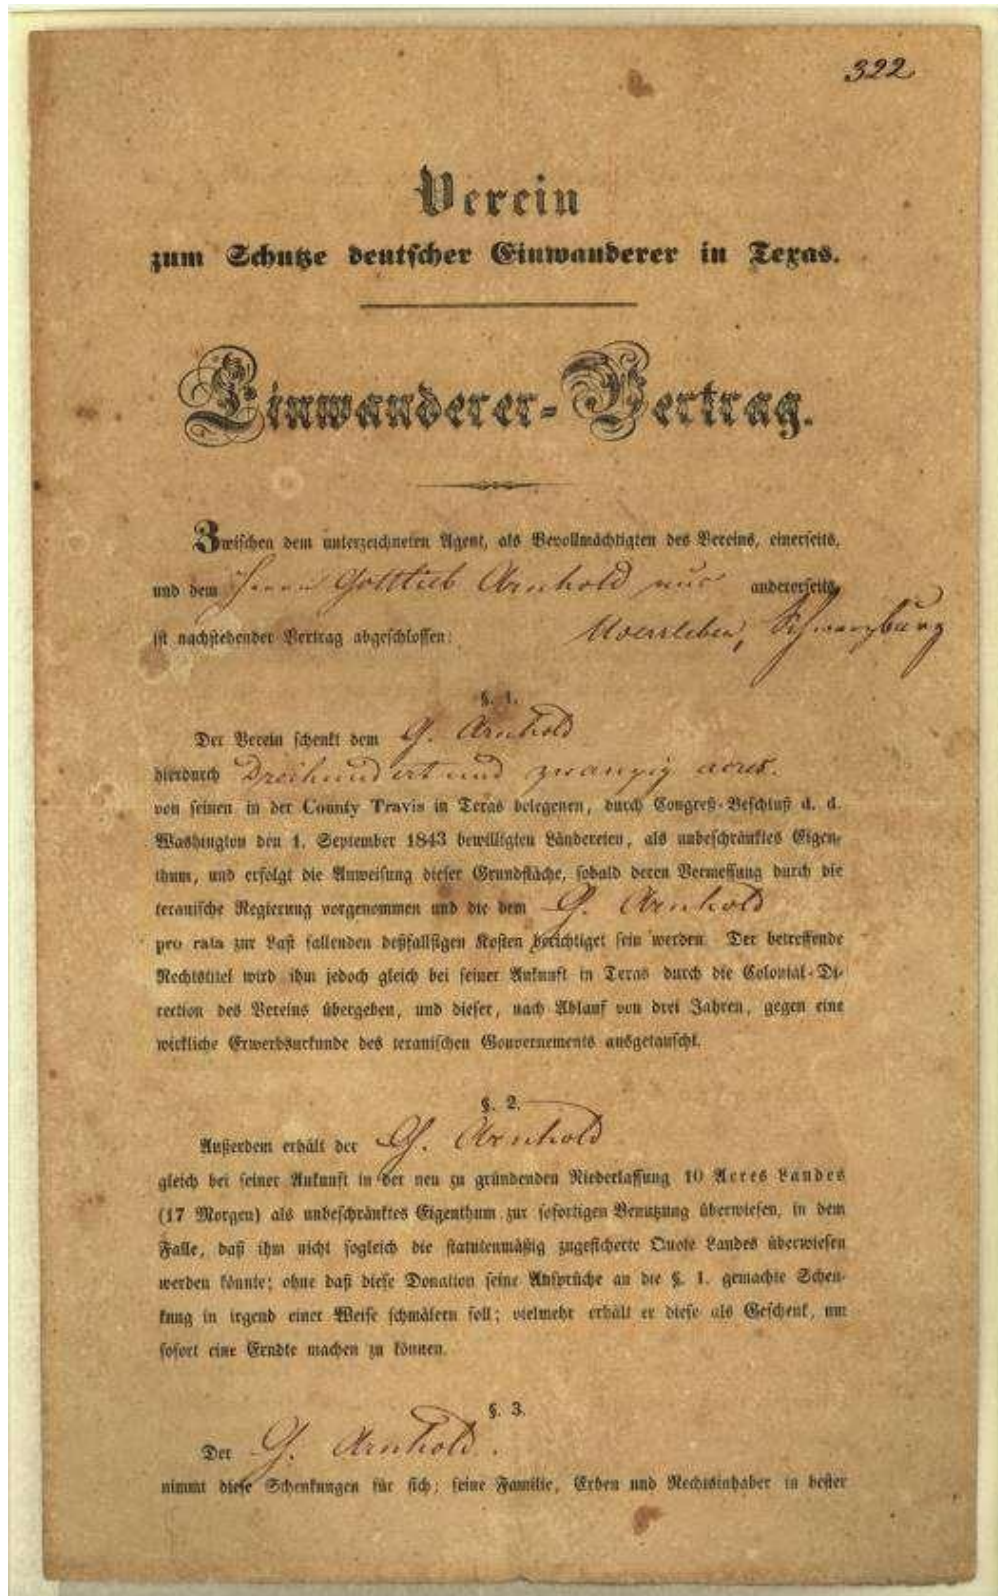 322
Verein
zum Schutze deutscher Einwanderer in Texas.
Einwanderer-Vertrag.
Zwischen dem unterzeichneten Agent, als Bevollmächtigten des Vereins, einerseits,
und dem Herrn Gottlieb Arnhold aus andererseits,
ist nachstehender Vertrag abgeschlossen: Schwarzburg
§. 1.
Der Verein schenkt dem G. Arnhold
hierdurch Dreihundert und zwanzig acres.
von seinen in der County Travis in Texas belegenen, durch Congreß-Beschluß d. d.
Washington den 1. September 1843 bewilligten Ländereien, als unbeschränktes Eigen-
thum, und erfolgt die Anweisung dieser Grundfläche, sobald deren Vermessung durch die
texanische Regierung vorgenommen und die dem G. Arnhold
pro rata zur Last fallenden deßfallsigen Kosten berichtiget sein werden. Der betreffende
Rechtstitel wird ihm jedoch gleich bei seiner Ankunft in Texas durch die Colonial-Di-
rection des Vereins übergeben, und dieser, nach Ablauf von drei Jahren, gegen eine
wirkliche Erwerbsurkunde des texanischen Gouvernements ausgetauscht.
§. 2.
Außerdem erhält der G. Arnhold
gleich bei seiner Ankunft in der neu zu gründenden Niederlassung 10 Acres Landes
(17 Morgen) als unbeschränktes Eigenthum zur sofortigen Benutzung überwiesen, in dem
Falle, daß ihm nicht sogleich die statutenmäßig zugesicherte Quote Landes überwiesen
werden könnte; ohne daß diese Donation seine Ansprüche an die §. 1. gemachte Schen-
kung in irgend einer Weise schmälern soll; vielmehr erhält er diese als Geschenk, um
sofort eine Erndte machen zu können.
§. 3.
Der G. Arnhold.
nimmt diese Schenkungen für sich; seine Familie, Erben und Rechtsinhaber in bester